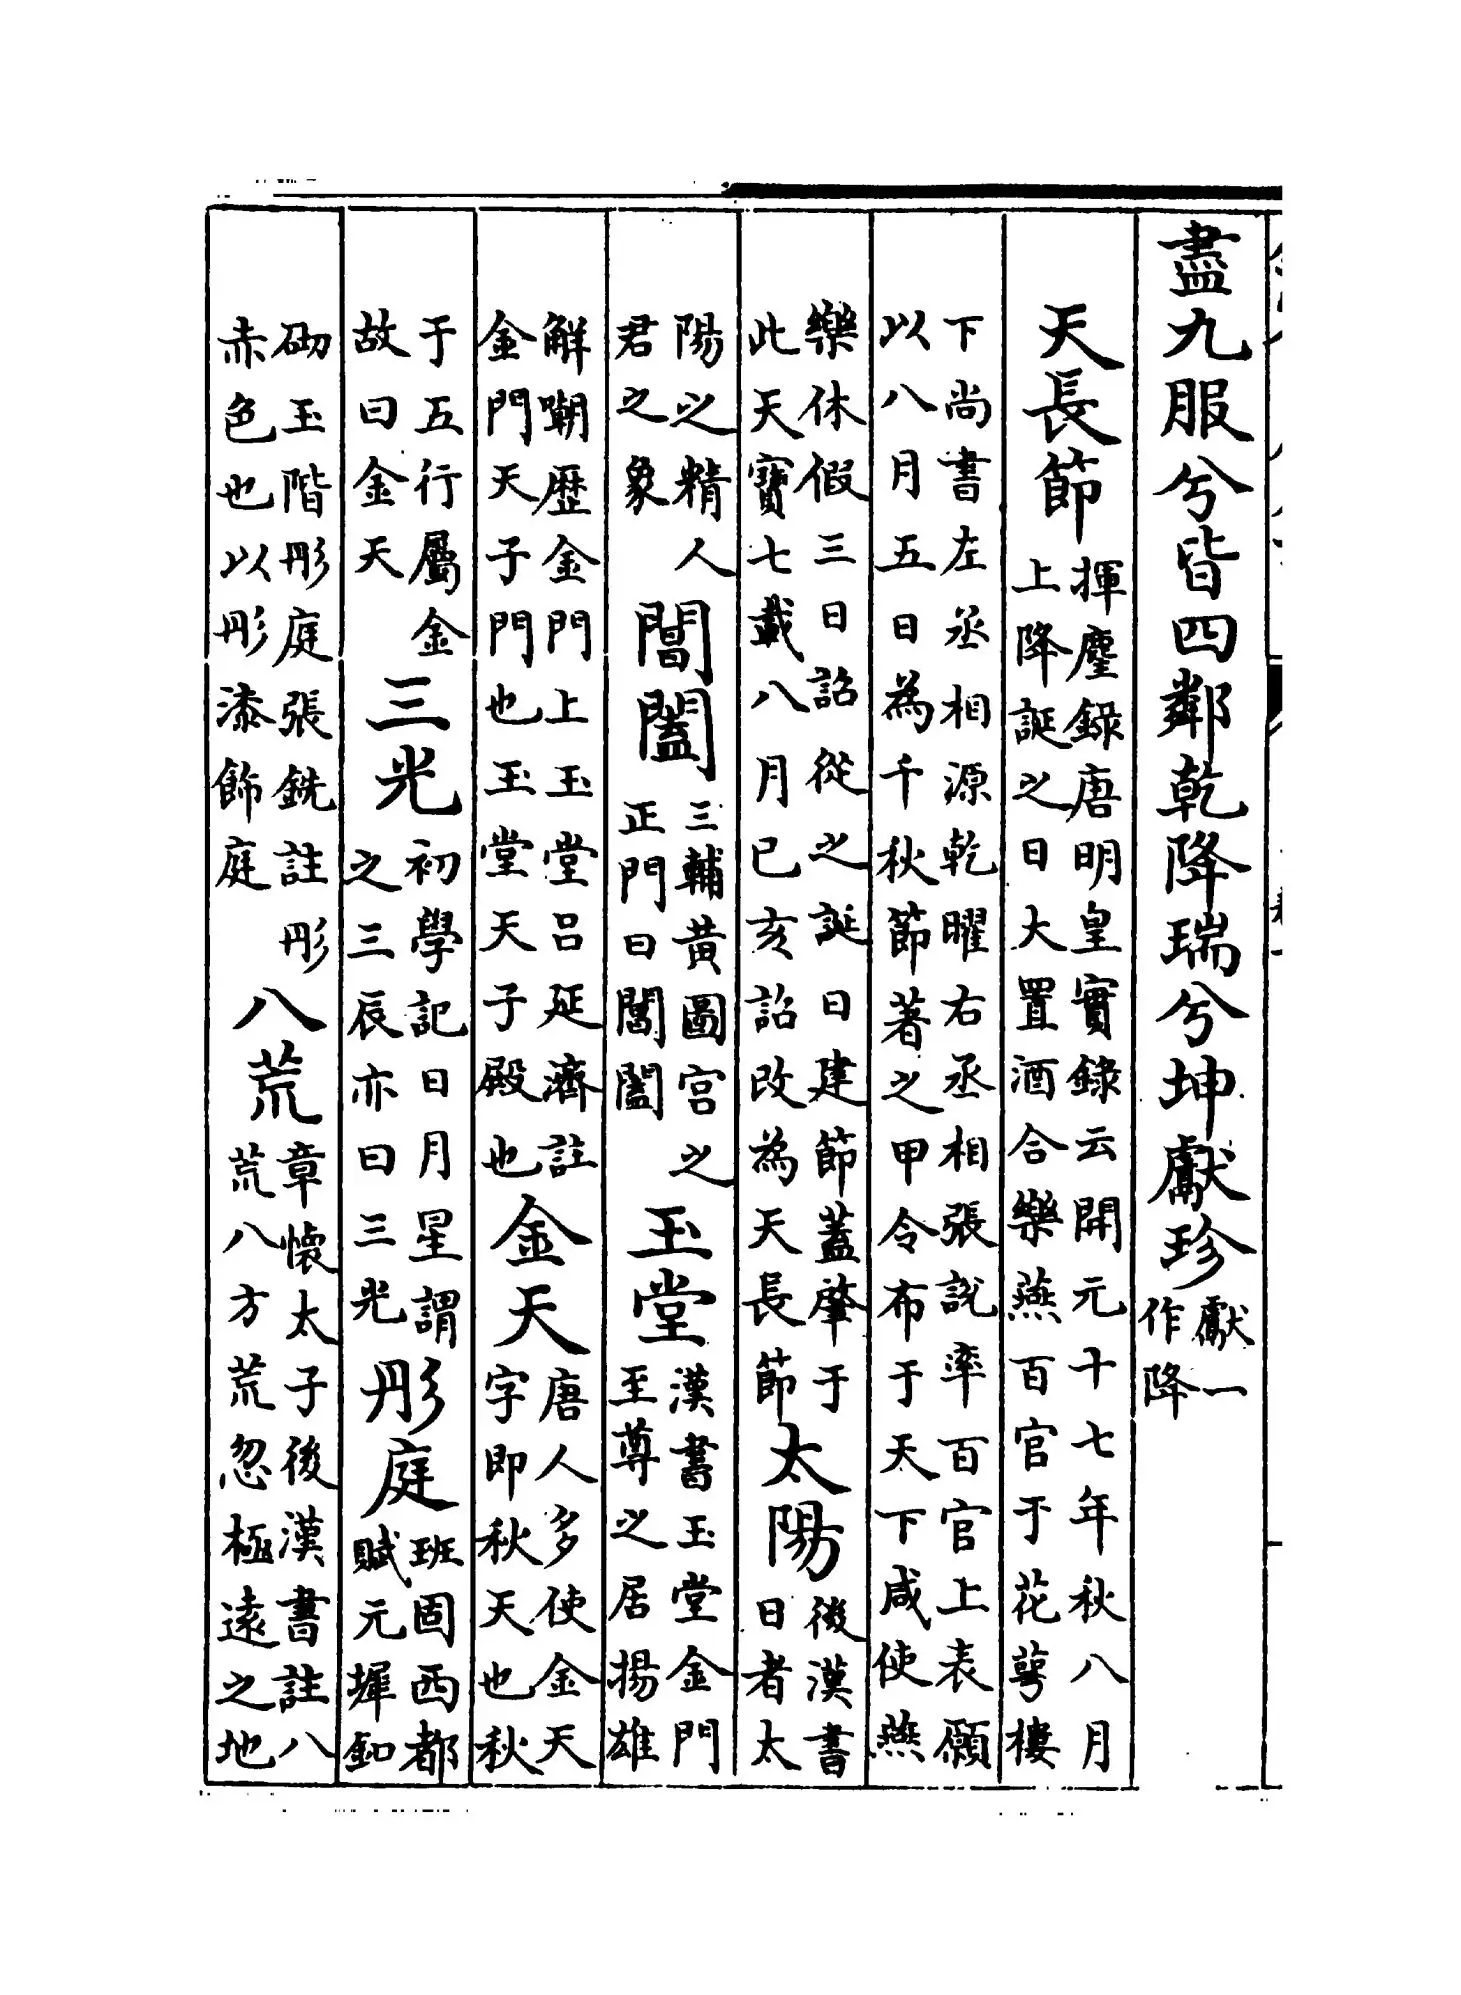 盡九服兮皆四鄰乾降瑞兮坤獻珍獻一作降
天長節揮麈録唐明皇實録云開元十七年秋八月上降誕之日大置酒合樂燕百官于花萼樓
下尚書左丞相源乾曜右丞相張說率百官上表願以八月五日為千秋節著之甲令布于天下咸使燕
樂休假三日詔從之誕日建節蓋肇于此天寶七載八月已亥詔改為天長節太陽後漢書日者太
陽之精人君之象閶闔三輔黃圖宮之正門曰閶闔玉堂漢書玉堂金門至尊之居揚雄
解嘲歴金門上玉堂呂延濟註金門天子門也玉堂天子殿也金天唐人多使金天字即秋天也秋
于五行屬金故曰金天三光初學記日月星謂之三辰亦曰三光彤庭班固西都賦元墀釦
砌玉階彤庭張銑註彤赤色也以彤漆飾庭八荒章懷太子後漢書註八荒八方荒忽極遠之地